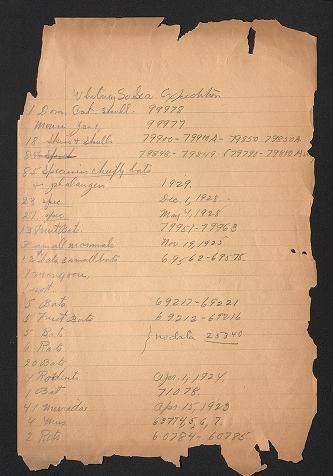 Whitney So Sea Expedition
1 Dom. Cat skull. 99978
Mouse Jaw, 99977
18 Skins & skulls 79900-79917A - 79850 79850A
79840-79849 (79790-79818
85 Specimens chiefly bats
+ phalanger 1929.
23 spec Dec. 1, 1928.
27 spec May 4, 1928
13 Fruit Bats 79951-79963
small mammals Nov. 19, 1923.
12 small bats 69562-69578.
1 mongoose,
1 rat.
5 Bats 69217-69221
5 Fruit Bats 69212-69216
5 Bats
6 Rats no data 25340
20 Bats
4 Rodents Apr. 1, 1924.
1 Bat 71078.
41 Muridae Apr 15, 1923
4 Mus 63774, 5, 6, 7.
2 Rats 60784-60785